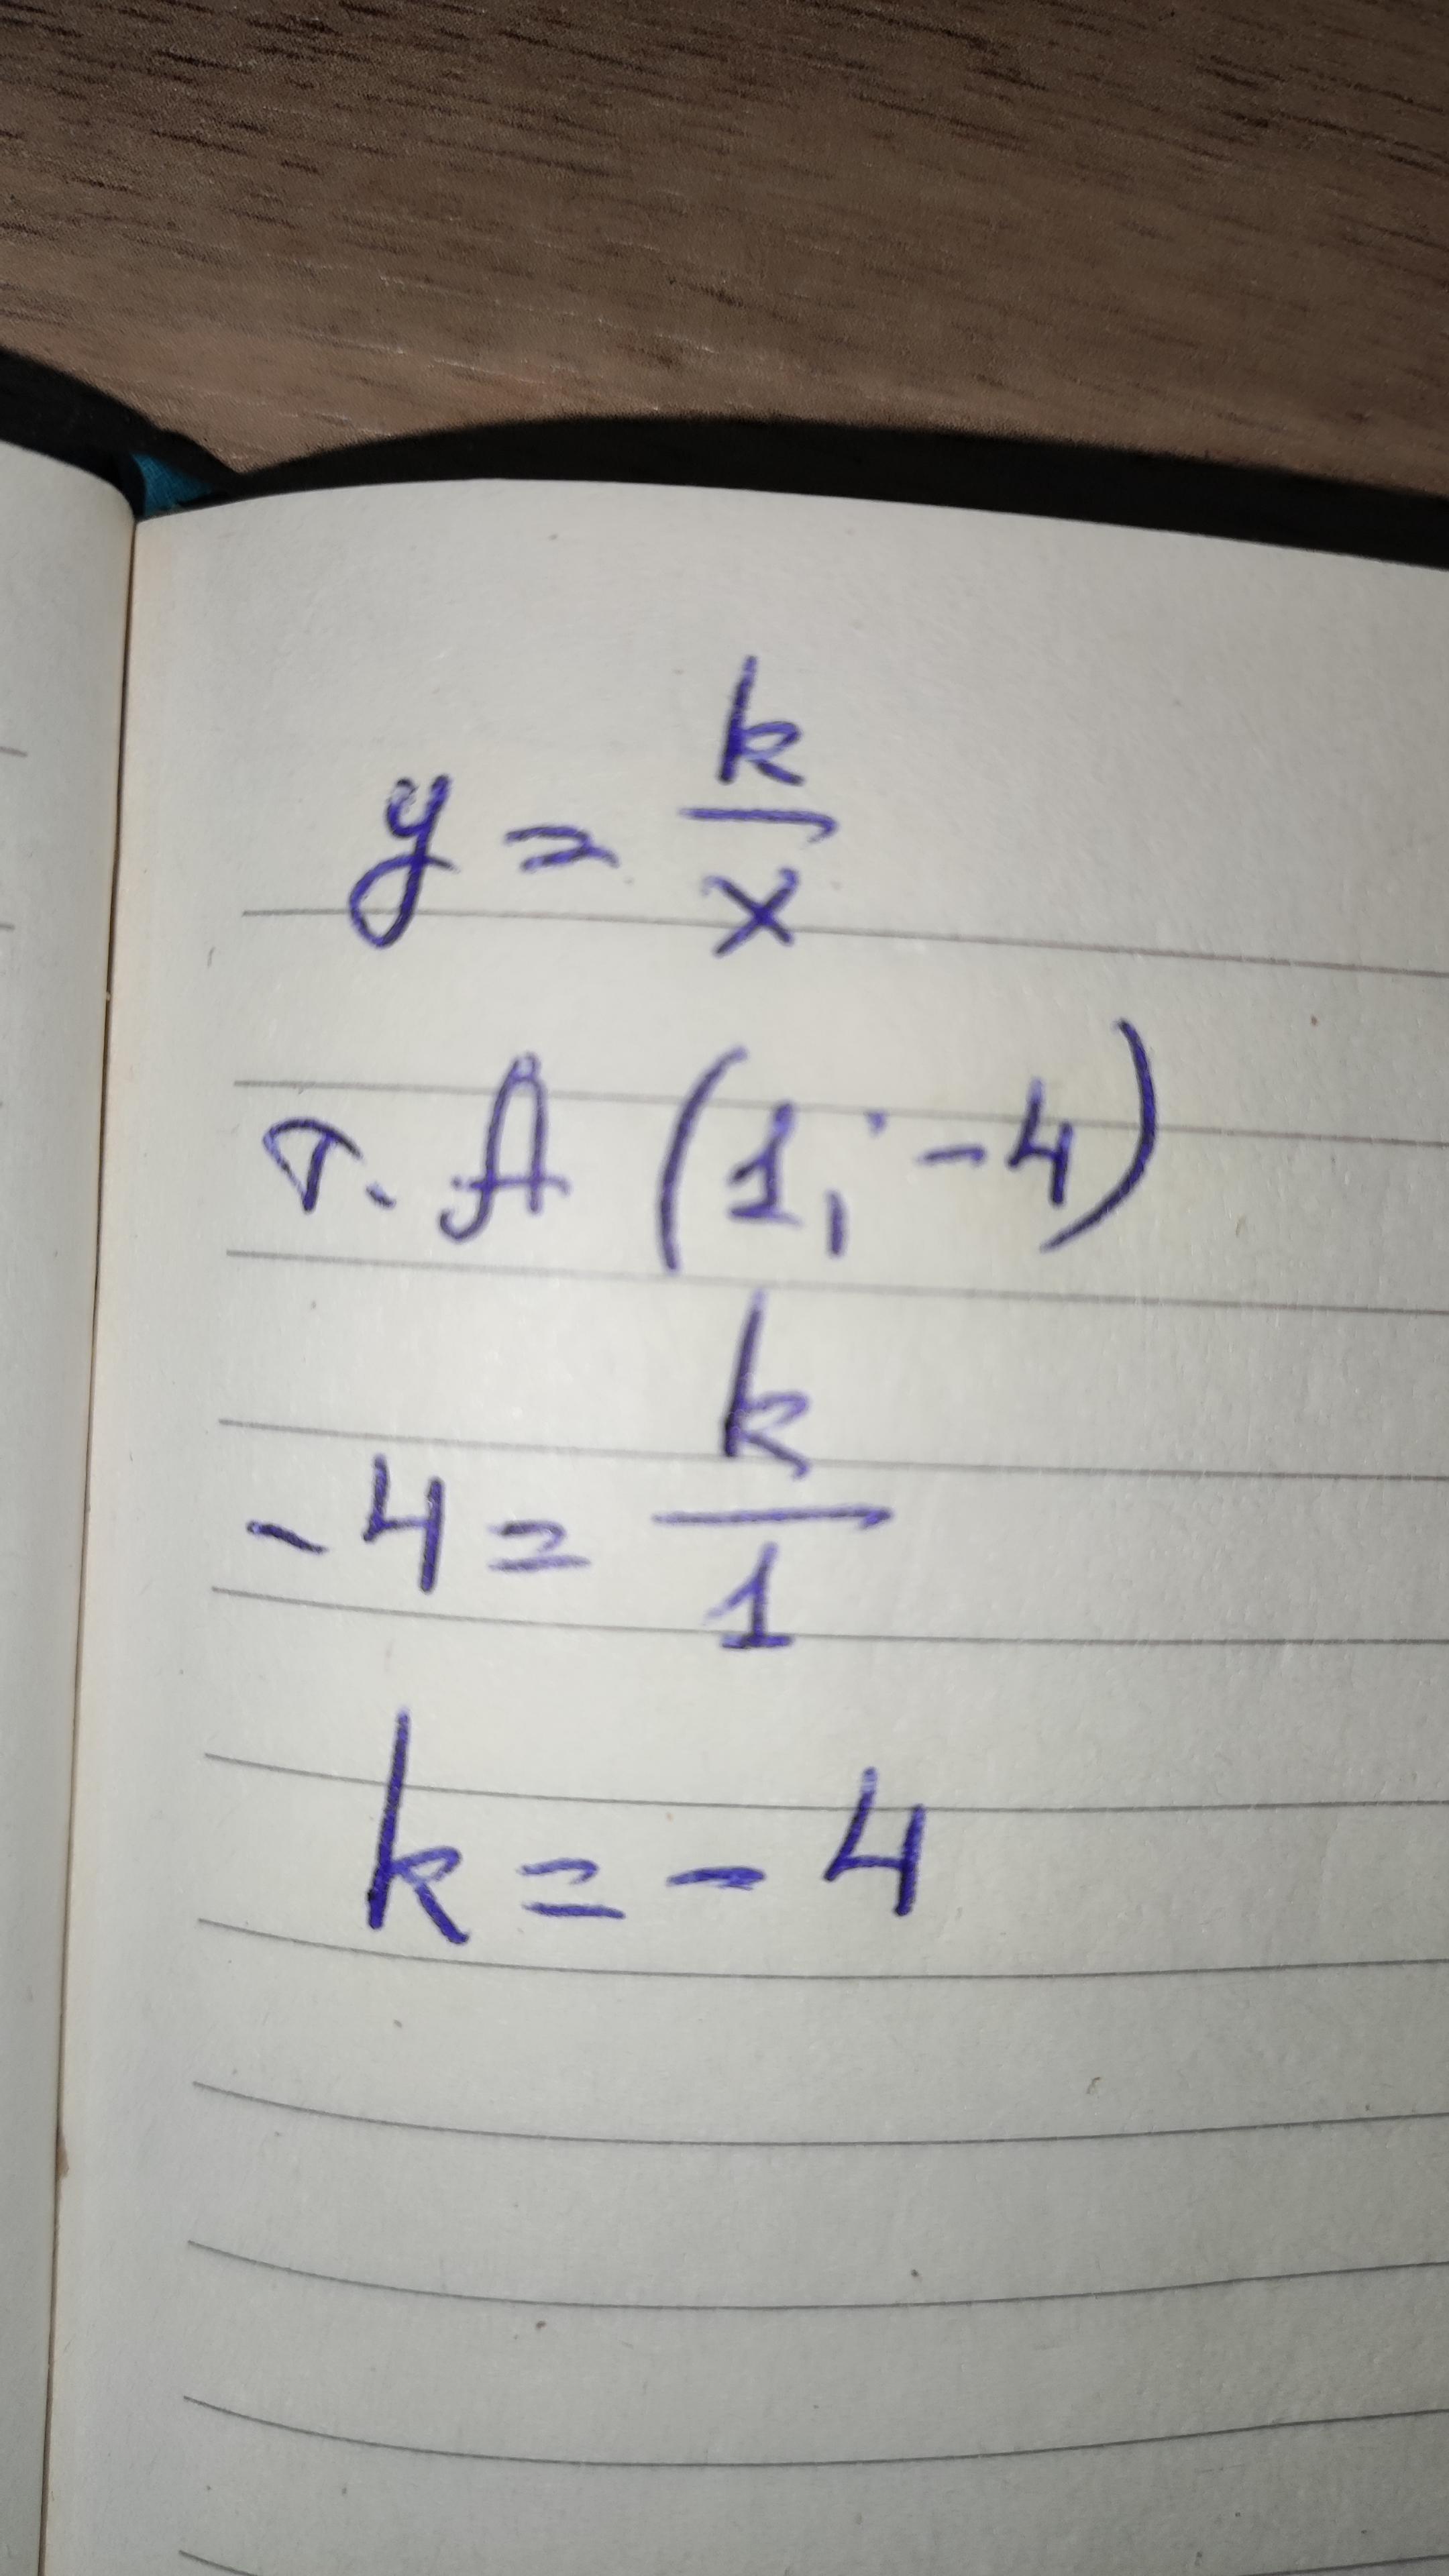 y = k/x
т. A (1; -4)
-4 = k/1
k = -4